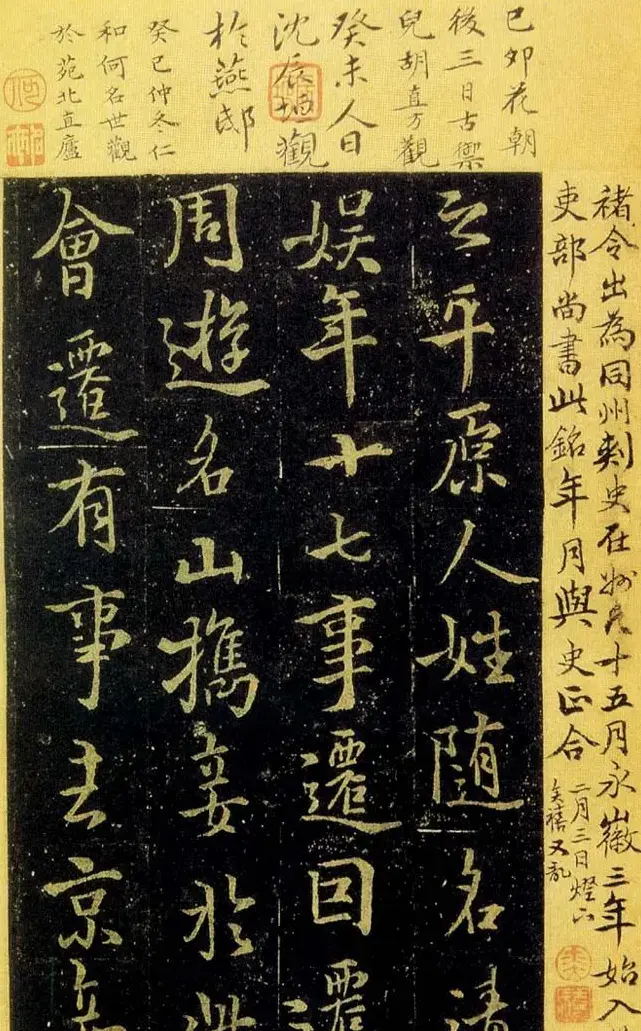 己卯花朝
後三日古
兒胡直方觀
癸未人日
沈辰垣觀
於燕邸
癸巳仲冬仁
和何名世觀
於苑北直廬
褚令出為同州刺史在州凡十五月永徽三年始入
吏部尚書此銘年月與史正合
二月三日燈下
之平原人姓随名清
娱年十七事遷因遷
周遊名山擕妾於此
會遷有事去京妾